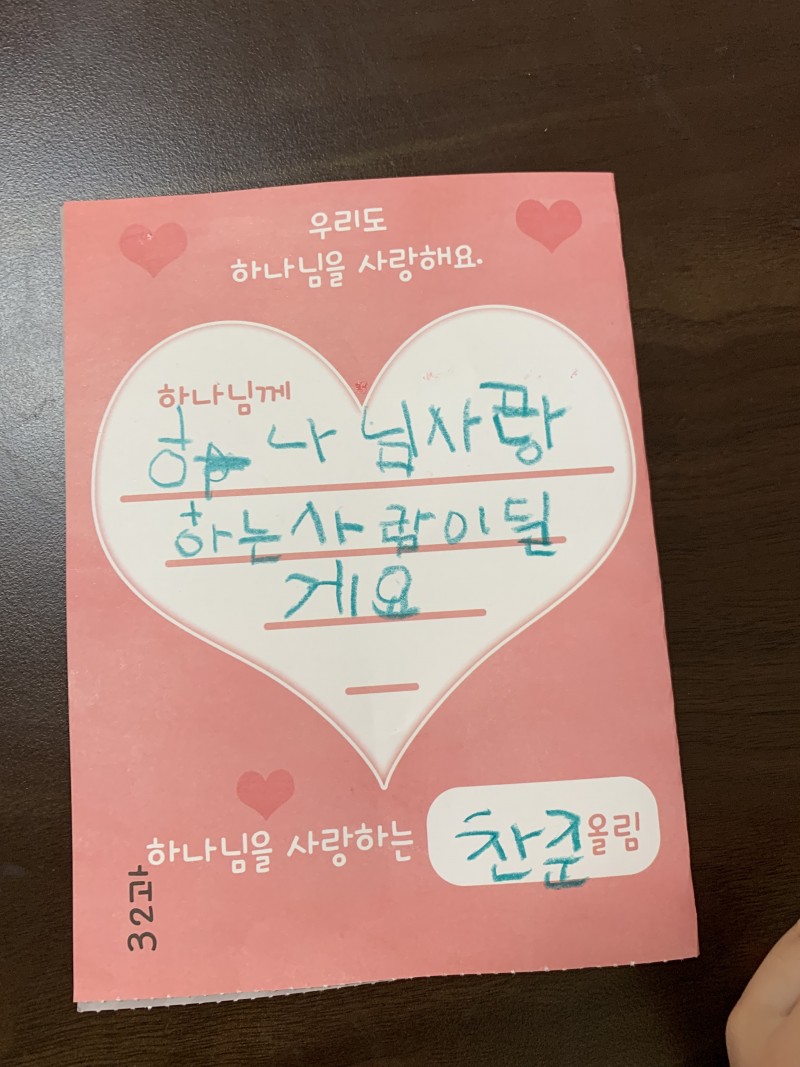 우리도
하나님을 사랑해요.
하나님께
하나님사랑
하는사람이될
게요
하나님을 사랑하는 찬준올림
32과